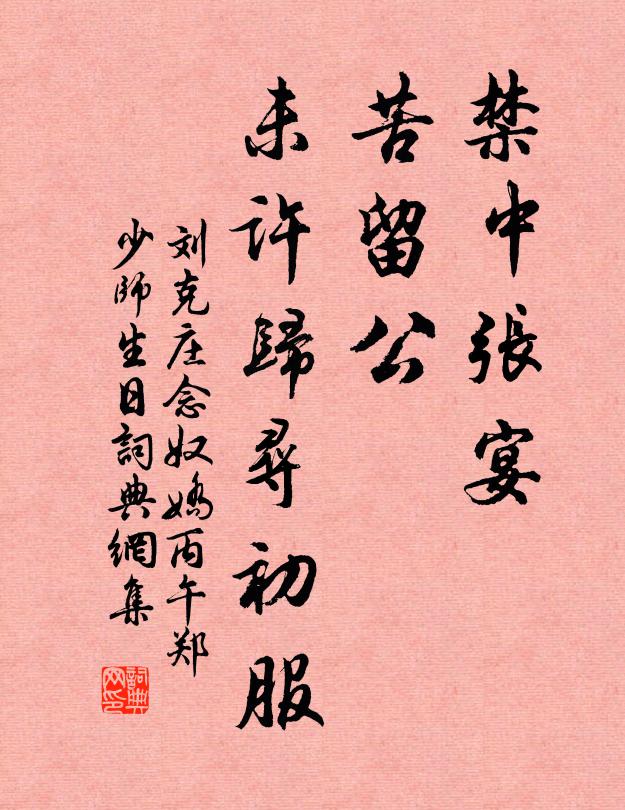 禁中張宴
苦留公
未許歸尋初服
刘克庄念奴嬌丙午郑
少師生日詞典網集
詞典
网印